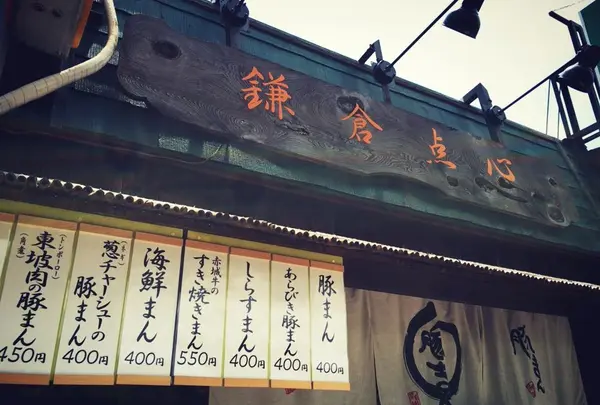 鎌倉点心
豚まん
400円
あらびき豚まん
400円
しらすまん
400円
赤城牛の
すき焼きまん
550円
海鮮まん
400円
(ネギ)
葱チャーシューの
豚まん
400円
(トンポーロー)
東坡肉の豚まん
(角煮)
450円
豚まん